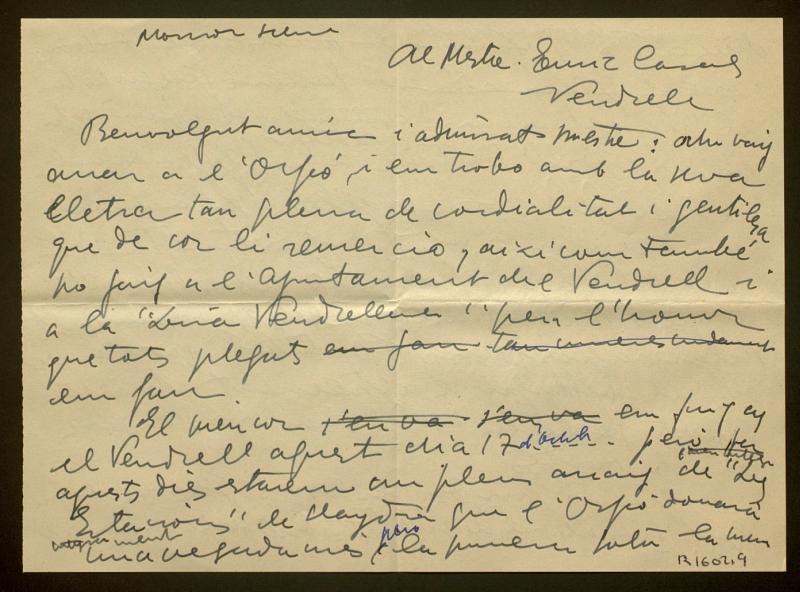 Al Mestre. Enric Casals
Vendrell
Benvolgut amic i admirat Mestre: ahir vaig
anar a l'Orfeó, i em trobo amb la seva
lletra tan plena de cordialitat i gentilesa
que de cor li remercio, així com també
ho faig a l'Ajuntament del Vendrell i
a la "Lira Vendrellenca" per l'honor
que tots plegats em fan tan immerescudament
em fan
El menor s'en va s'en va em
el Vendrell aquest dia 17 d'octubre. però
aquests dies estarem en plens assaig de "Les
Estacions" de Haydn que l'Orfeó donarà
una vegada més però la tota la
R.160219